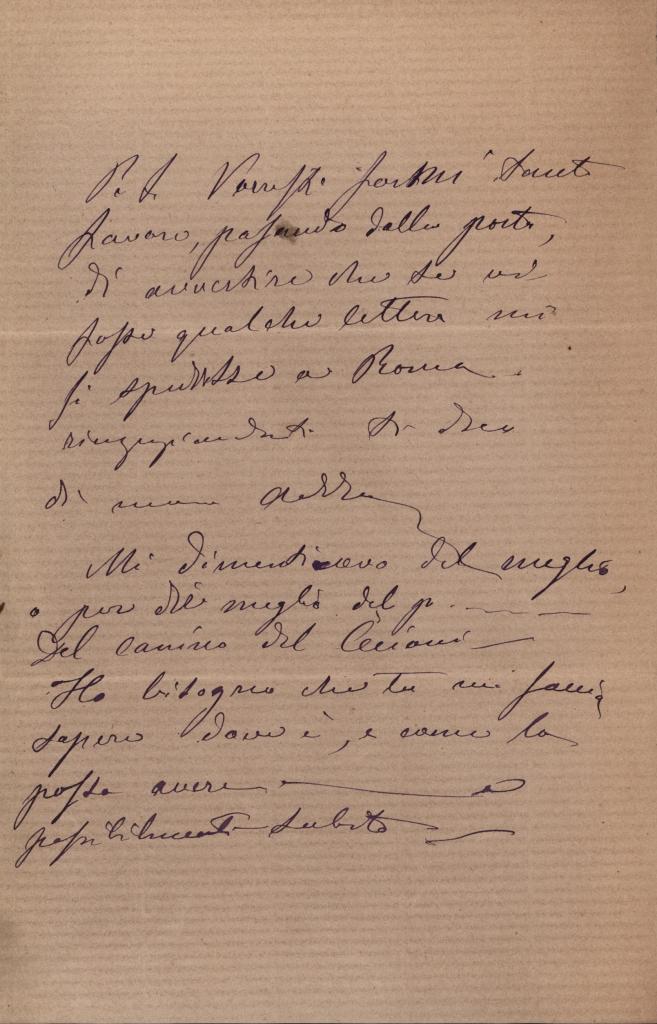 P. S. Vorresti farmi tanto
favore, passando dalla posta,
di avvertire che se vi
fosse qualche lettera mi
si spedisse a Roma.
ringraziandoti ti dico
di nuovo addio
Mi dimenticavo del meglio,
o per dir meglio del p.
Del camino del Cecioni
Ho bisogno che tu mi faccia
sapere dove è, e come lo
possa avere
possibilmente subito